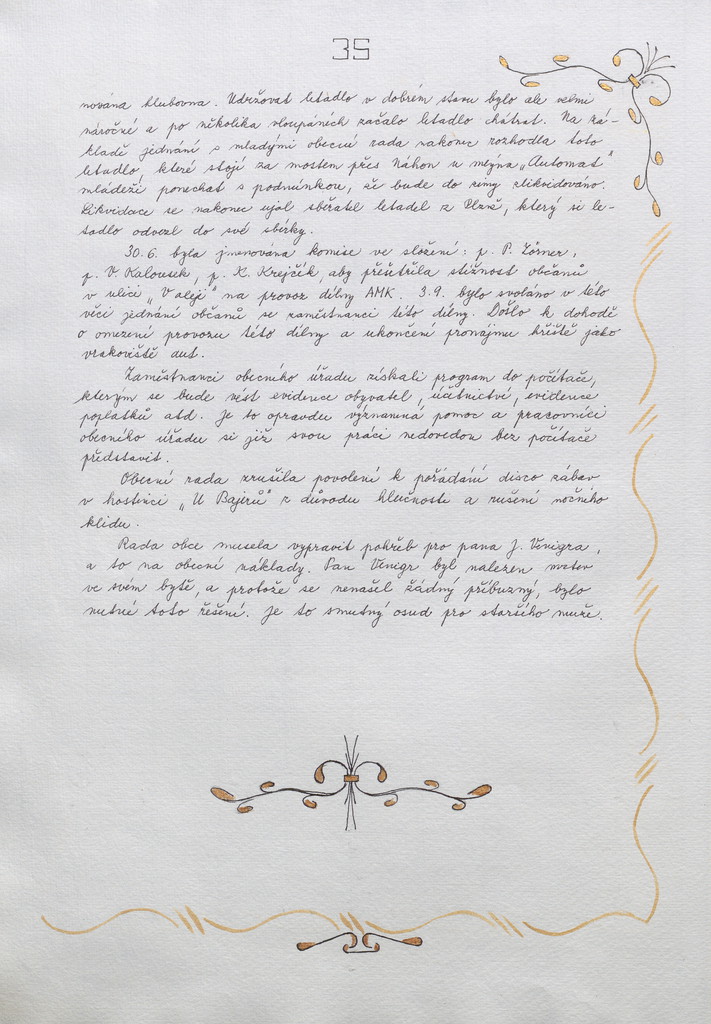 35
nována klubovna. Udržovat letadlo v dobrém stavu bylo ale velmi
náročné a po několika vloupáních začalo letadlo chátrat. Na zá-
kladě jednání s mladými obecní rada nakonec rozhodla toto
letadlo, které stojí za mostem přes Náhon u mlýna „Automat"
mládeži ponechat s podmínkou, že bude do zimy zlikvidováno.
Likvidace se nakonec ujal sběratel letadel z Plzně, který si le-
tadlo odvezl do své sbírky.
30.6. byla jmenována komise ve složení: p. P. Zörner,
p. V. Kalousek, p. K. Krejčík, aby prošetřila stížnost občanů
v ulici „V aleji" na provoz dílny AMK. 3.9. bylo svoláno v této
věci jednání občanů se zaměstnanci této dílny. Došlo k dohodě
o omezení provozu této dílny a ukončení pronájmu hřiště jako
vrakoviště aut.
Zaměstnanci obecního úřadu získali program do počítače,
kterým se bude vést evidence obyvatel, účetnictví, evidence
poplatků atd. Je to opravdu významná pomoc a pracovníci
obecního úřadu si již svou práci nedovedou bez počítače
představit.
Obecní rada zrušila povolení k pořádání disco zábav
v hostinci „U Bajerů" z důvodu hlučnosti a rušení nočního
klidu.
Rada obce musela vypravit pohřeb pro pana J. Vinigra,
a to na obecní náklady. Pan Vinigr byl nalezen mrtev
ve svém bytě, a protože se nenašel žádný příbuzný, bylo
nutné toto řešení. Je to smutný osud pro staršího muže.